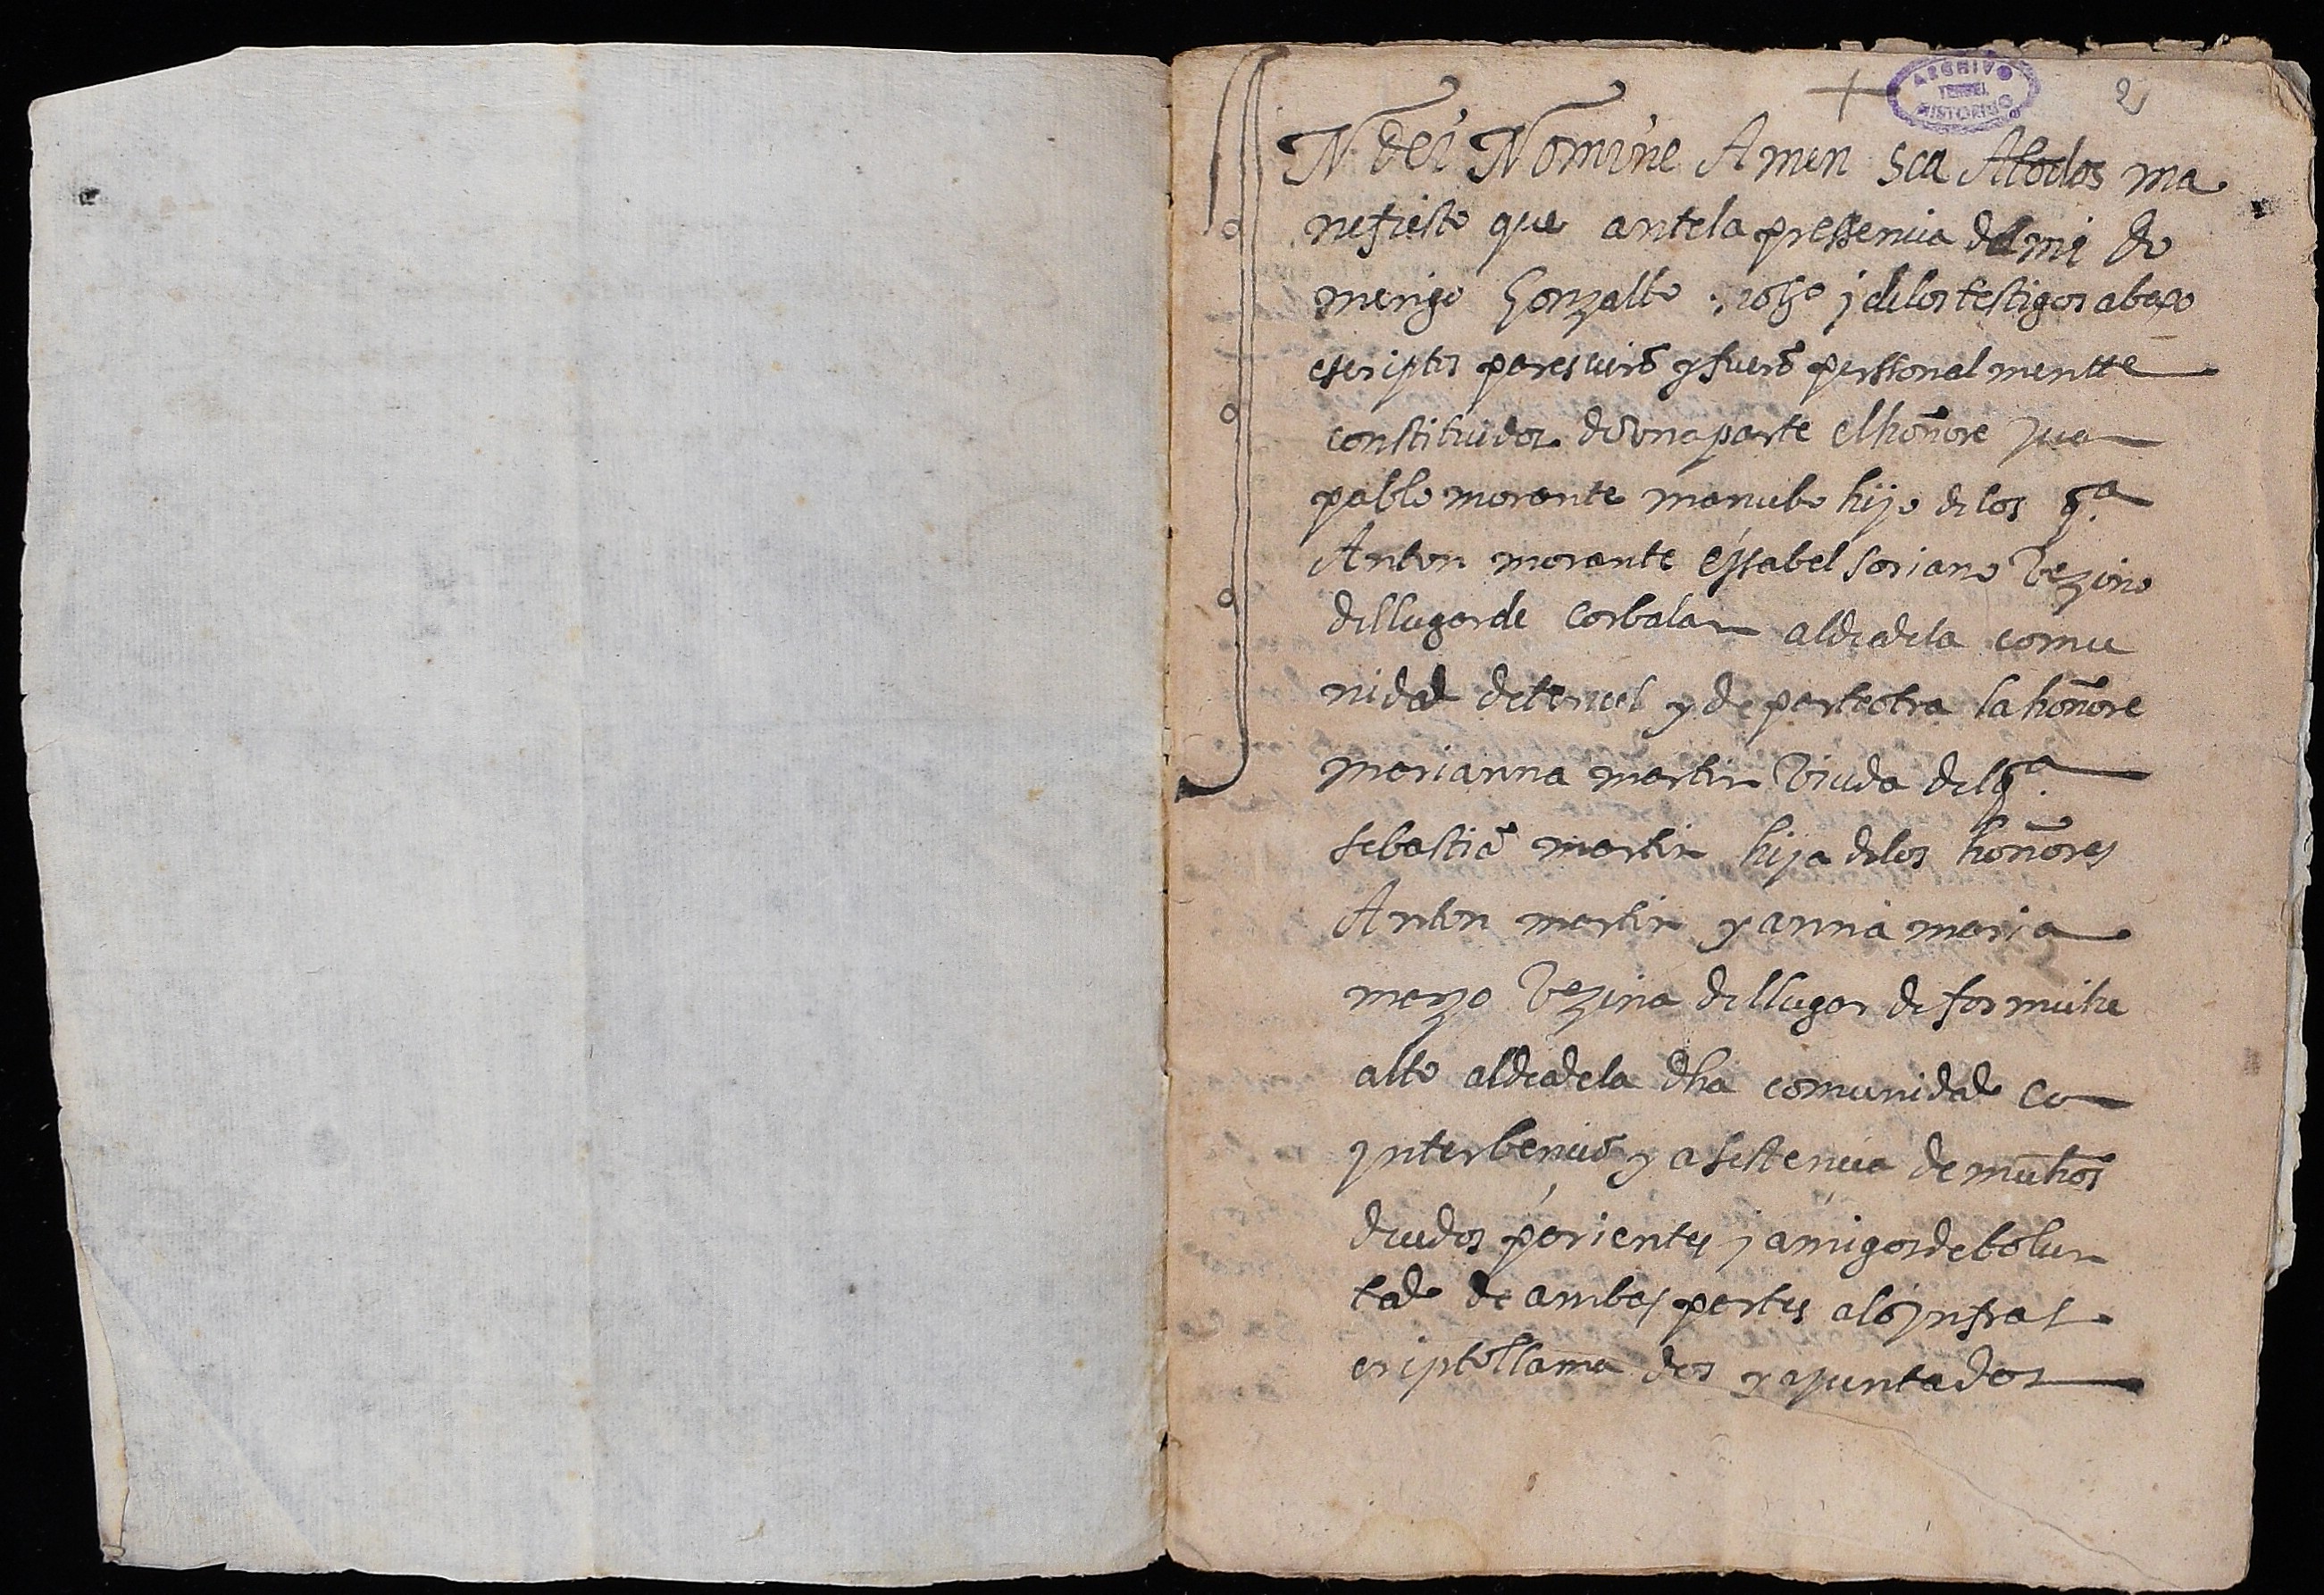 ARCHIVO
TERUEL
HISTORICO
2
IN dei Nomine Amen sea Atodos ma
nefiesto que antela pressencia de mi do
mingo Gonzalbo noto j delos testigos abaxo
escriptos parescierō y fuerō personalmentte
constituidos de una parte el honore Jua
pablo morante mancebo hijo de los qa
Anton morante e yssabel soriano Vezino
del lugar de corbalan aldea dela comu
nidad de teruel y de parte otra la honore
marianna martin Viuda del qa
sebastiā martin hija delos honores
Anton martin y anna maria
marzo Vezina del lugar de formiche
alto aldea dela dha comunidad co
yntervenciō y asistencia de muchos
deudos parientes j amigos de bolun
tad de ambas partes alo ynfras
criptto llamados y ajuntados